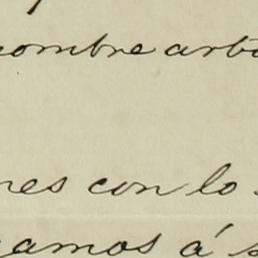 nombre arti
nes con lo
amos á s